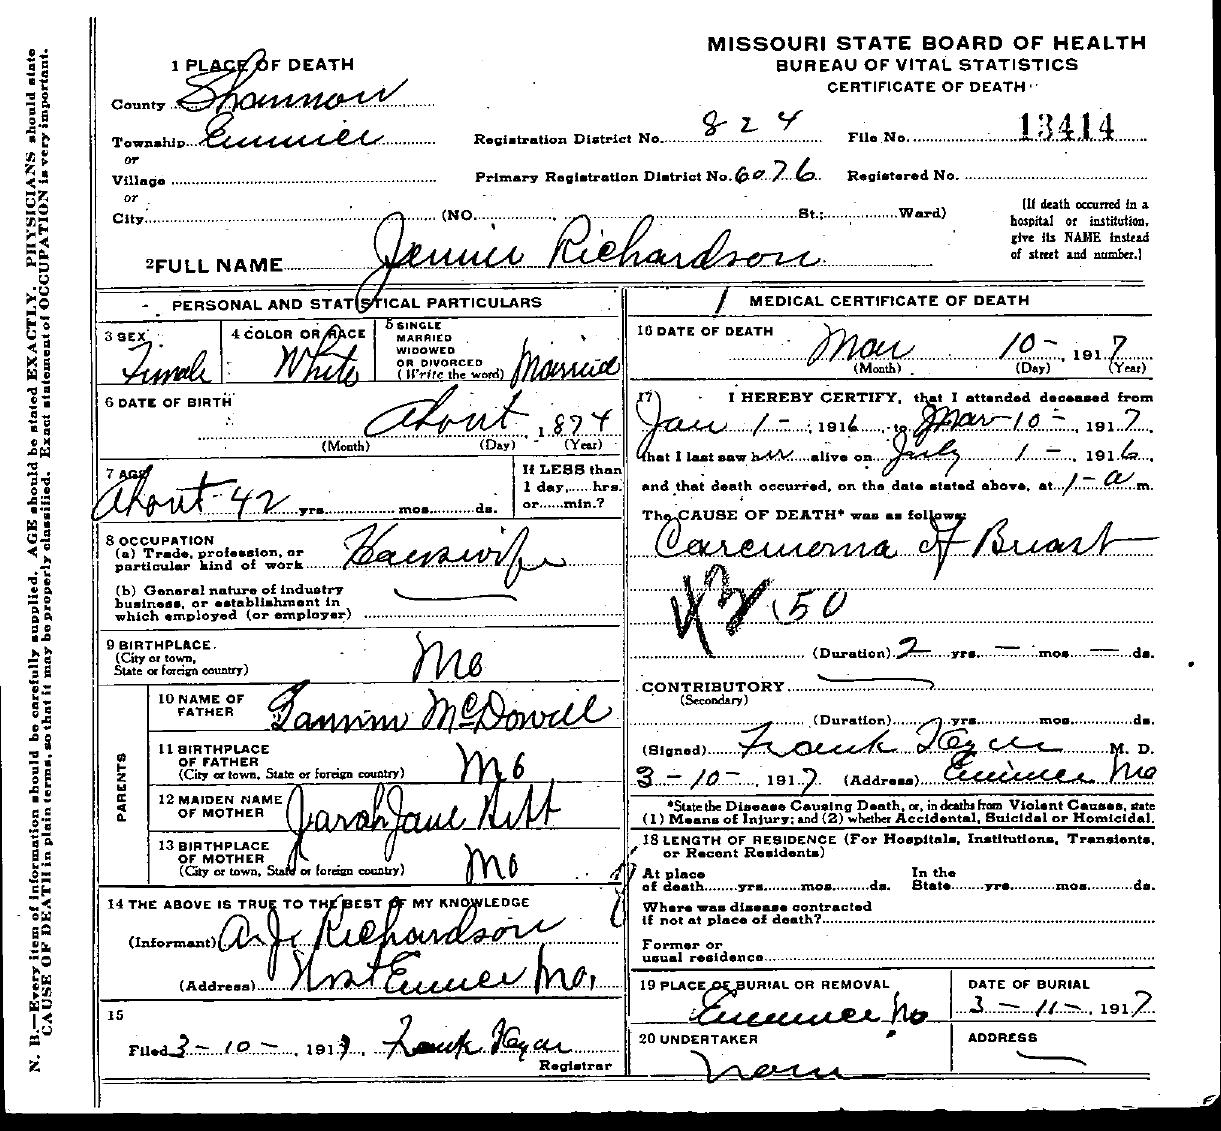 MISSOURI STATE BOARD OF HEALTH
BUREAU OF VITAL STATISTICS
CERTIFICATE OF DEATH
1 PLACE OF DEATH
County Shannon
Township Eminence
or
Village
or
City (NO. St.; Ward)
Registration District No. 824 File No. 13414
Primary Registration District No. 6076 Registered No.
(If death occurred in a
hospital or institution,
give its NAME instead
of street and number.)
2 FULL NAME Jennie Richardson
PERSONAL AND STATISTICAL PARTICULARS
3 SEX
Female
4 COLOR OR RACE
White
5 SINGLE
MARRIED
WIDOWED
OR DIVORCED
(Write the word) Married
6 DATE OF BIRTH
About 1874
(Month) (Day) (Year)
7 AGE
About 42 yrs. mos. ds.
If LESS than
1 day, hrs.
or min.?
8 OCCUPATION
(a) Trade, profession, or
particular kind of work Housewife
(b) General nature of industry
business, or establishment in
which employed (or employer)
9 BIRTHPLACE
(City or town,
State or foreign country) Mo
PARENTS
10 NAME OF
FATHER McDowell
11 BIRTHPLACE
OF FATHER
(City or town, State or foreign country) Mo
12 MAIDEN NAME
OF MOTHER Sarah Jane
13 BIRTHPLACE
OF MOTHER
(City or town, State or foreign country) Mo
14 THE ABOVE IS TRUE TO THE BEST OF MY KNOWLEDGE
(Informant) A. J. Richardson
(Address) Mo.
15
Filed 3-10-, 1917, Frank
Registrar
MEDICAL CERTIFICATE OF DEATH
16 DATE OF DEATH
Mar 10-, 1917
(Month) (Day) (Year)
17 I HEREBY CERTIFY, that I attended deceased from
Jan 1-, 1916 to Mar-10-, 1917,
that I last saw her alive on July 1-, 1916,
and that death occurred, on the date stated above, at 1-a m.
The CAUSE OF DEATH* was as follows:
Carcinoma of Breast
50
(Duration) 2 yrs. — mos. — ds.
CONTRIBUTORY
(Secondary)
(Duration) yrs. mos. ds.
(Signed) Frank M. D.
3-10-, 1917 (Address) Mo
*State the Disease Causing Death, or, in deaths from Violent Causes, state
(1) Means of Injury; and (2) whether Accidental, Suicidal or Homicidal.
18 LENGTH OF RESIDENCE (For Hospitals, Institutions, Transients,
or Recent Residents)
At place In the
of death yrs. mos. ds. State yrs. mos. ds.
Where was disease contracted
if not at place of death?
Former or
usual residence
19 PLACE OF BURIAL OR REMOVAL
Mo
DATE OF BURIAL
3-11-, 1917
20 UNDERTAKER
ADDRESS
N. B.—Every item of information should be carefully supplied. AGE should be stated EXACTLY. PHYSICIANS should state
CAUSE OF DEATH in plain terms, so that it may be properly classified. Exact statement of OCCUPATION is very important.